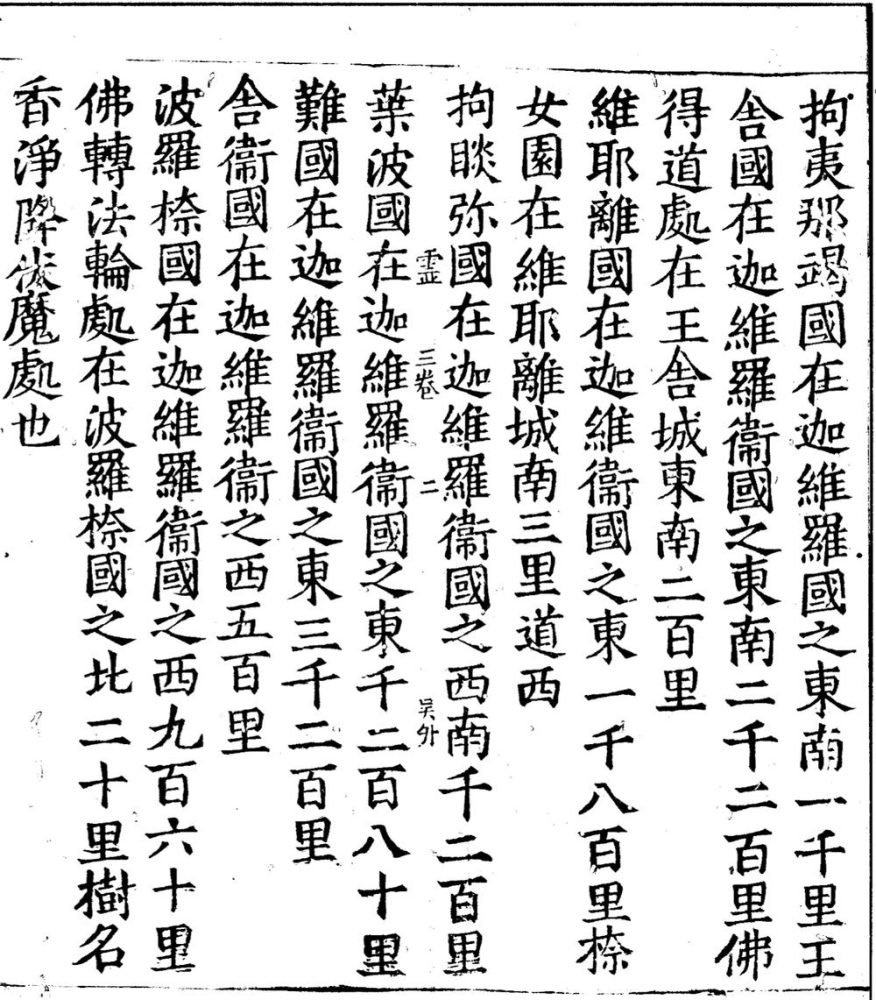 拘夷那竭國在迦維羅國之東南一千里王
舍國在迦維羅衞國之東南二千二百里佛
得道處在王舍城東南二百里
維耶離國在迦維衞國之東一千八百里㮈
女園在維耶離城南三里道西
拘睒弥國在迦維羅衞國之西南千二百里
霊 三巻 二 吴外
葉波國在迦維羅衞國之東千二百八十里
難國在迦維羅衞國之東三千二百里
舎衞國在迦維羅衞之西五百里
波羅㮈國在迦維羅衞國之西九百六十里
佛轉法輪處在波羅㮈國之北二十里樹名
香淨降伏魔處也